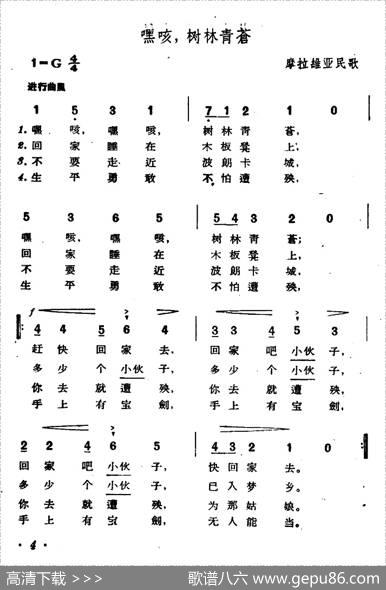 嘿咳，树林青蒼
1=G 4/4
摩拉雄亚民歌
进行曲風
1 5 3 1 7 1 2 1 0
1.嘿 咳， 嘿 咳， 树 林 青 蒼，
2.回 家 睡 在 木 板 凳 上，
3.不 要 走 近 波 朗 卡 城，
4.生 平 勇 敢 不 怕 遭 殃，
5 3 6 5 5 4 3 2 0
嘿 咳， 嘿 咳， 树 林 青 蒼；
回 家 睡 在 木 板 凳 上，
不 要 走 近 波 朗 卡 城，
生 平 勇 敢 不 怕 遭 殃，
f
4 4 2 4 6 4 3 3 3 4 5 3
赶 快 回 家 去， 回 家 吧 小伙 子，
多 少 个 小伙 子， 多 少 个 小伙 子，
你 去 就 遭 殃， 你 去 就 遭 殃，
手 上 有 宝 劍， 手 上 有 宝 劍，
2 2 2 4 6 5 4 3 2 1 0
回 家 吧 小伙 子， 快 回 家 去。
多 少 个 小伙 子， 已 入 梦 乡。
你 去 就 遭 殃， 为 那 姑 娘。
手 上 有 宝 劍， 无 人 能 当。
· 4 ·
高清下载 >>>
歌谱八六 www.gepu86.com